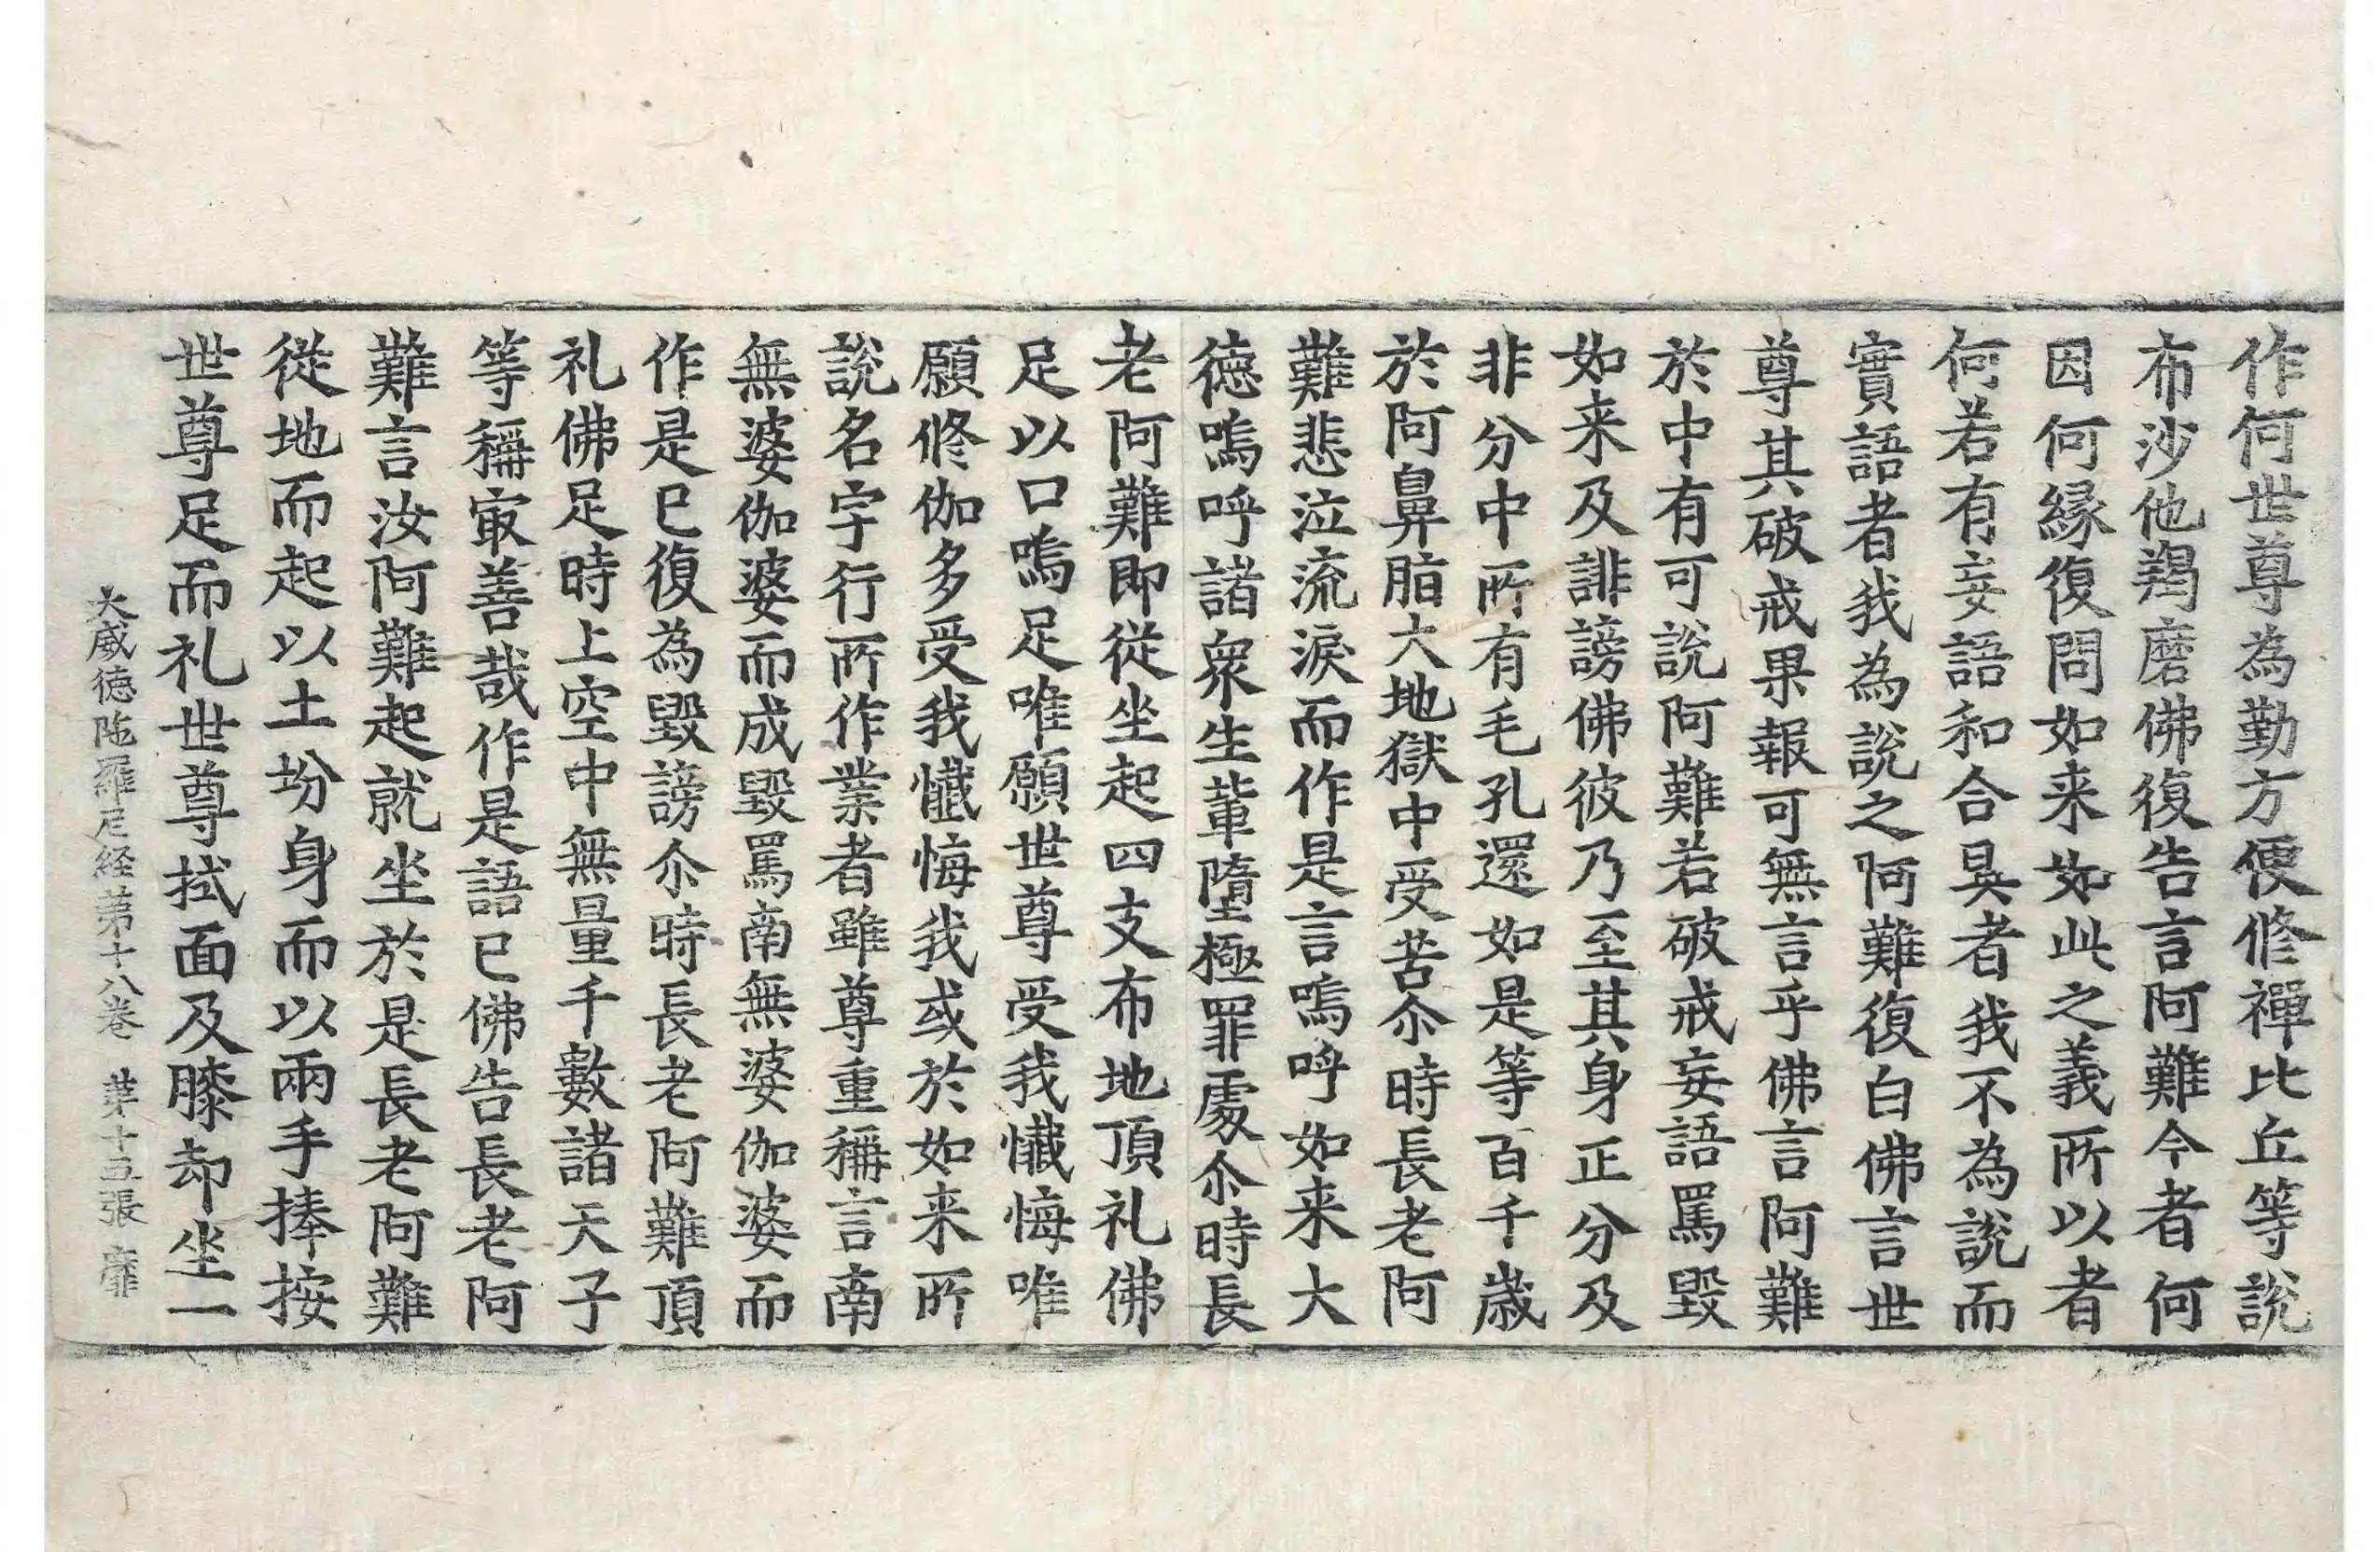 作何世尊為勤方便修禪比丘等說
布沙他羯磨佛復告言阿難今者何
因何縁復問如来如此之義所以者
何若有妄語和合具者我不為說而
實語者我為說之阿難復白佛言世
尊其破戒果報可無言乎佛言阿難
於中有可說阿難若破戒妄語罵毀
如来及誹謗佛彼乃至其身正分及
非分中所有毛孔還如是等百千歲
於阿鼻脂大地獄中受苦尒時長老阿
難悲泣流淚而作是言嗚呼如来大
徳嗚呼諸衆生輩墮極罪處尒時長
老阿難即從坐起四支布地頂礼佛
足以口嗚足唯願世尊受我懺悔唯
願修伽多受我懺悔我或於如来所
說名字行所作業者雖尊重稱言南
無婆伽婆而成毀罵南無婆伽婆而
作是已復為毀謗尒時長老阿難頂
礼佛足時上空中無量千數諸天子
等稱㝡善哉作是語已佛告長老阿
難言汝阿難起就坐於是長老阿難
從地而起以土坋身而以兩手捧按
世尊足而礼世尊拭面及膝却坐一
大威徳陁羅尼経第十八卷 第十五張 靡